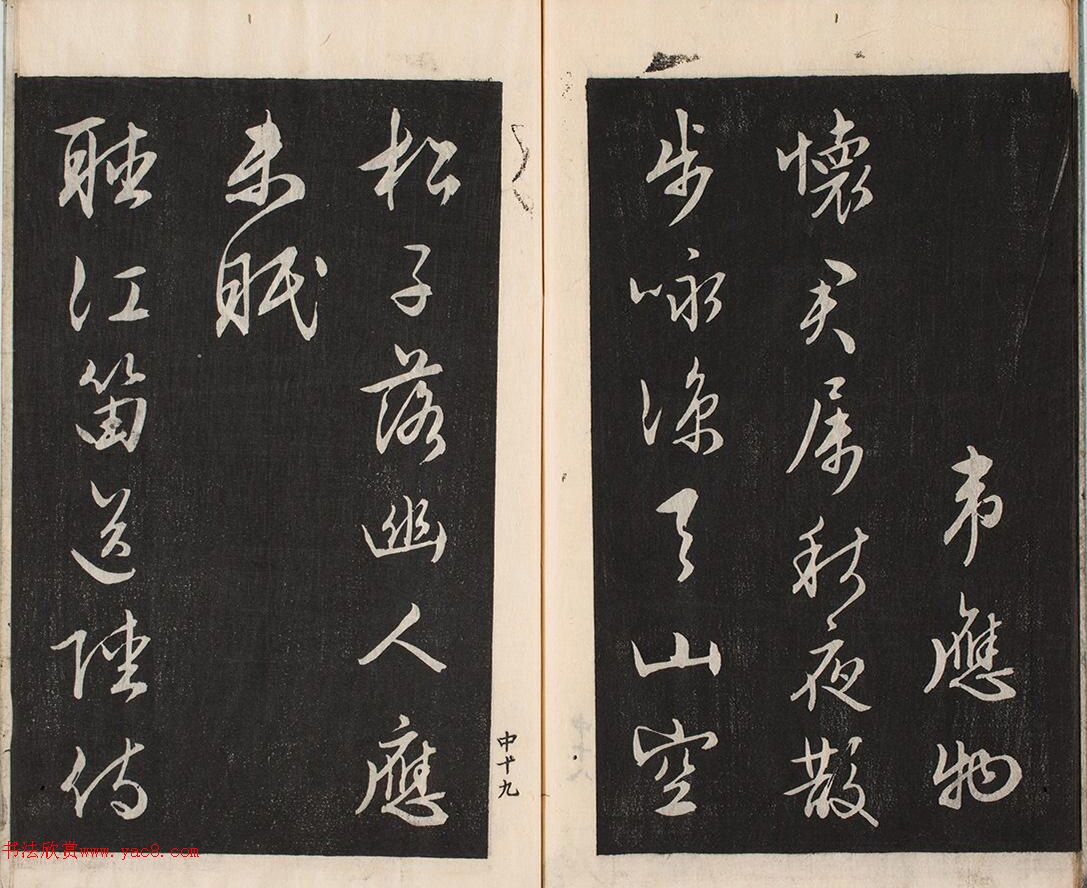 韋應物
懷君属秋夜散
步咏涼天山空
松子落幽人應
未眠
聽江笛送陸侍
中十九
书法欣赏www.yac8.com